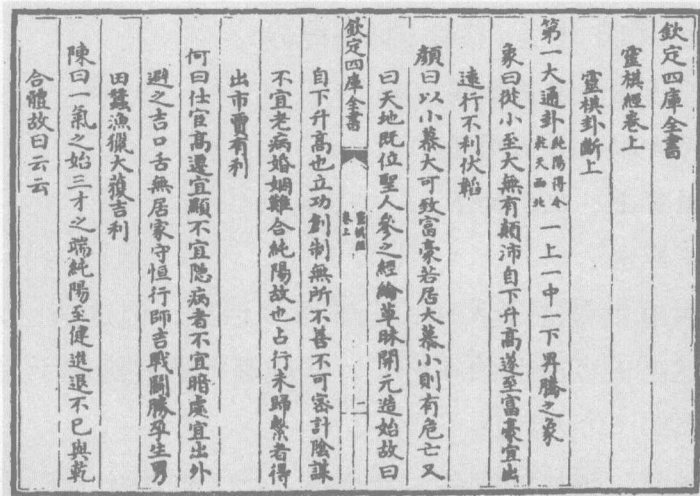 欽定四庫全書
靈棋經卷上
靈棋卦斷上
第一大通卦 純陽得令 乾天西北 一上一中一下 昇騰之象
象曰從小至大無有顛沛自下升高遂至富豪宜出
遠行不利伏韜
顏曰以小慕大可致富豪若居大慕小則有危亡又
曰天地既位聖人參之經綸草昧開元造始故曰
欽定四庫全書 靈棋經 卷上 二
自下升高也立功創制無所不善不可密計陰謀
不宜老病婚姻難合純陽故也占行未歸繫者得
出市賈有利
何曰仕官高遷宜顯不宜隐病者不宜暗處宜出外
避之吉口舌無居家守恒行師吉戰鬭勝孕生男
田蠶漁獵大蒑吉利
陳曰一氣之始三才之端純陽至健進退不已與乾
合體故曰云云